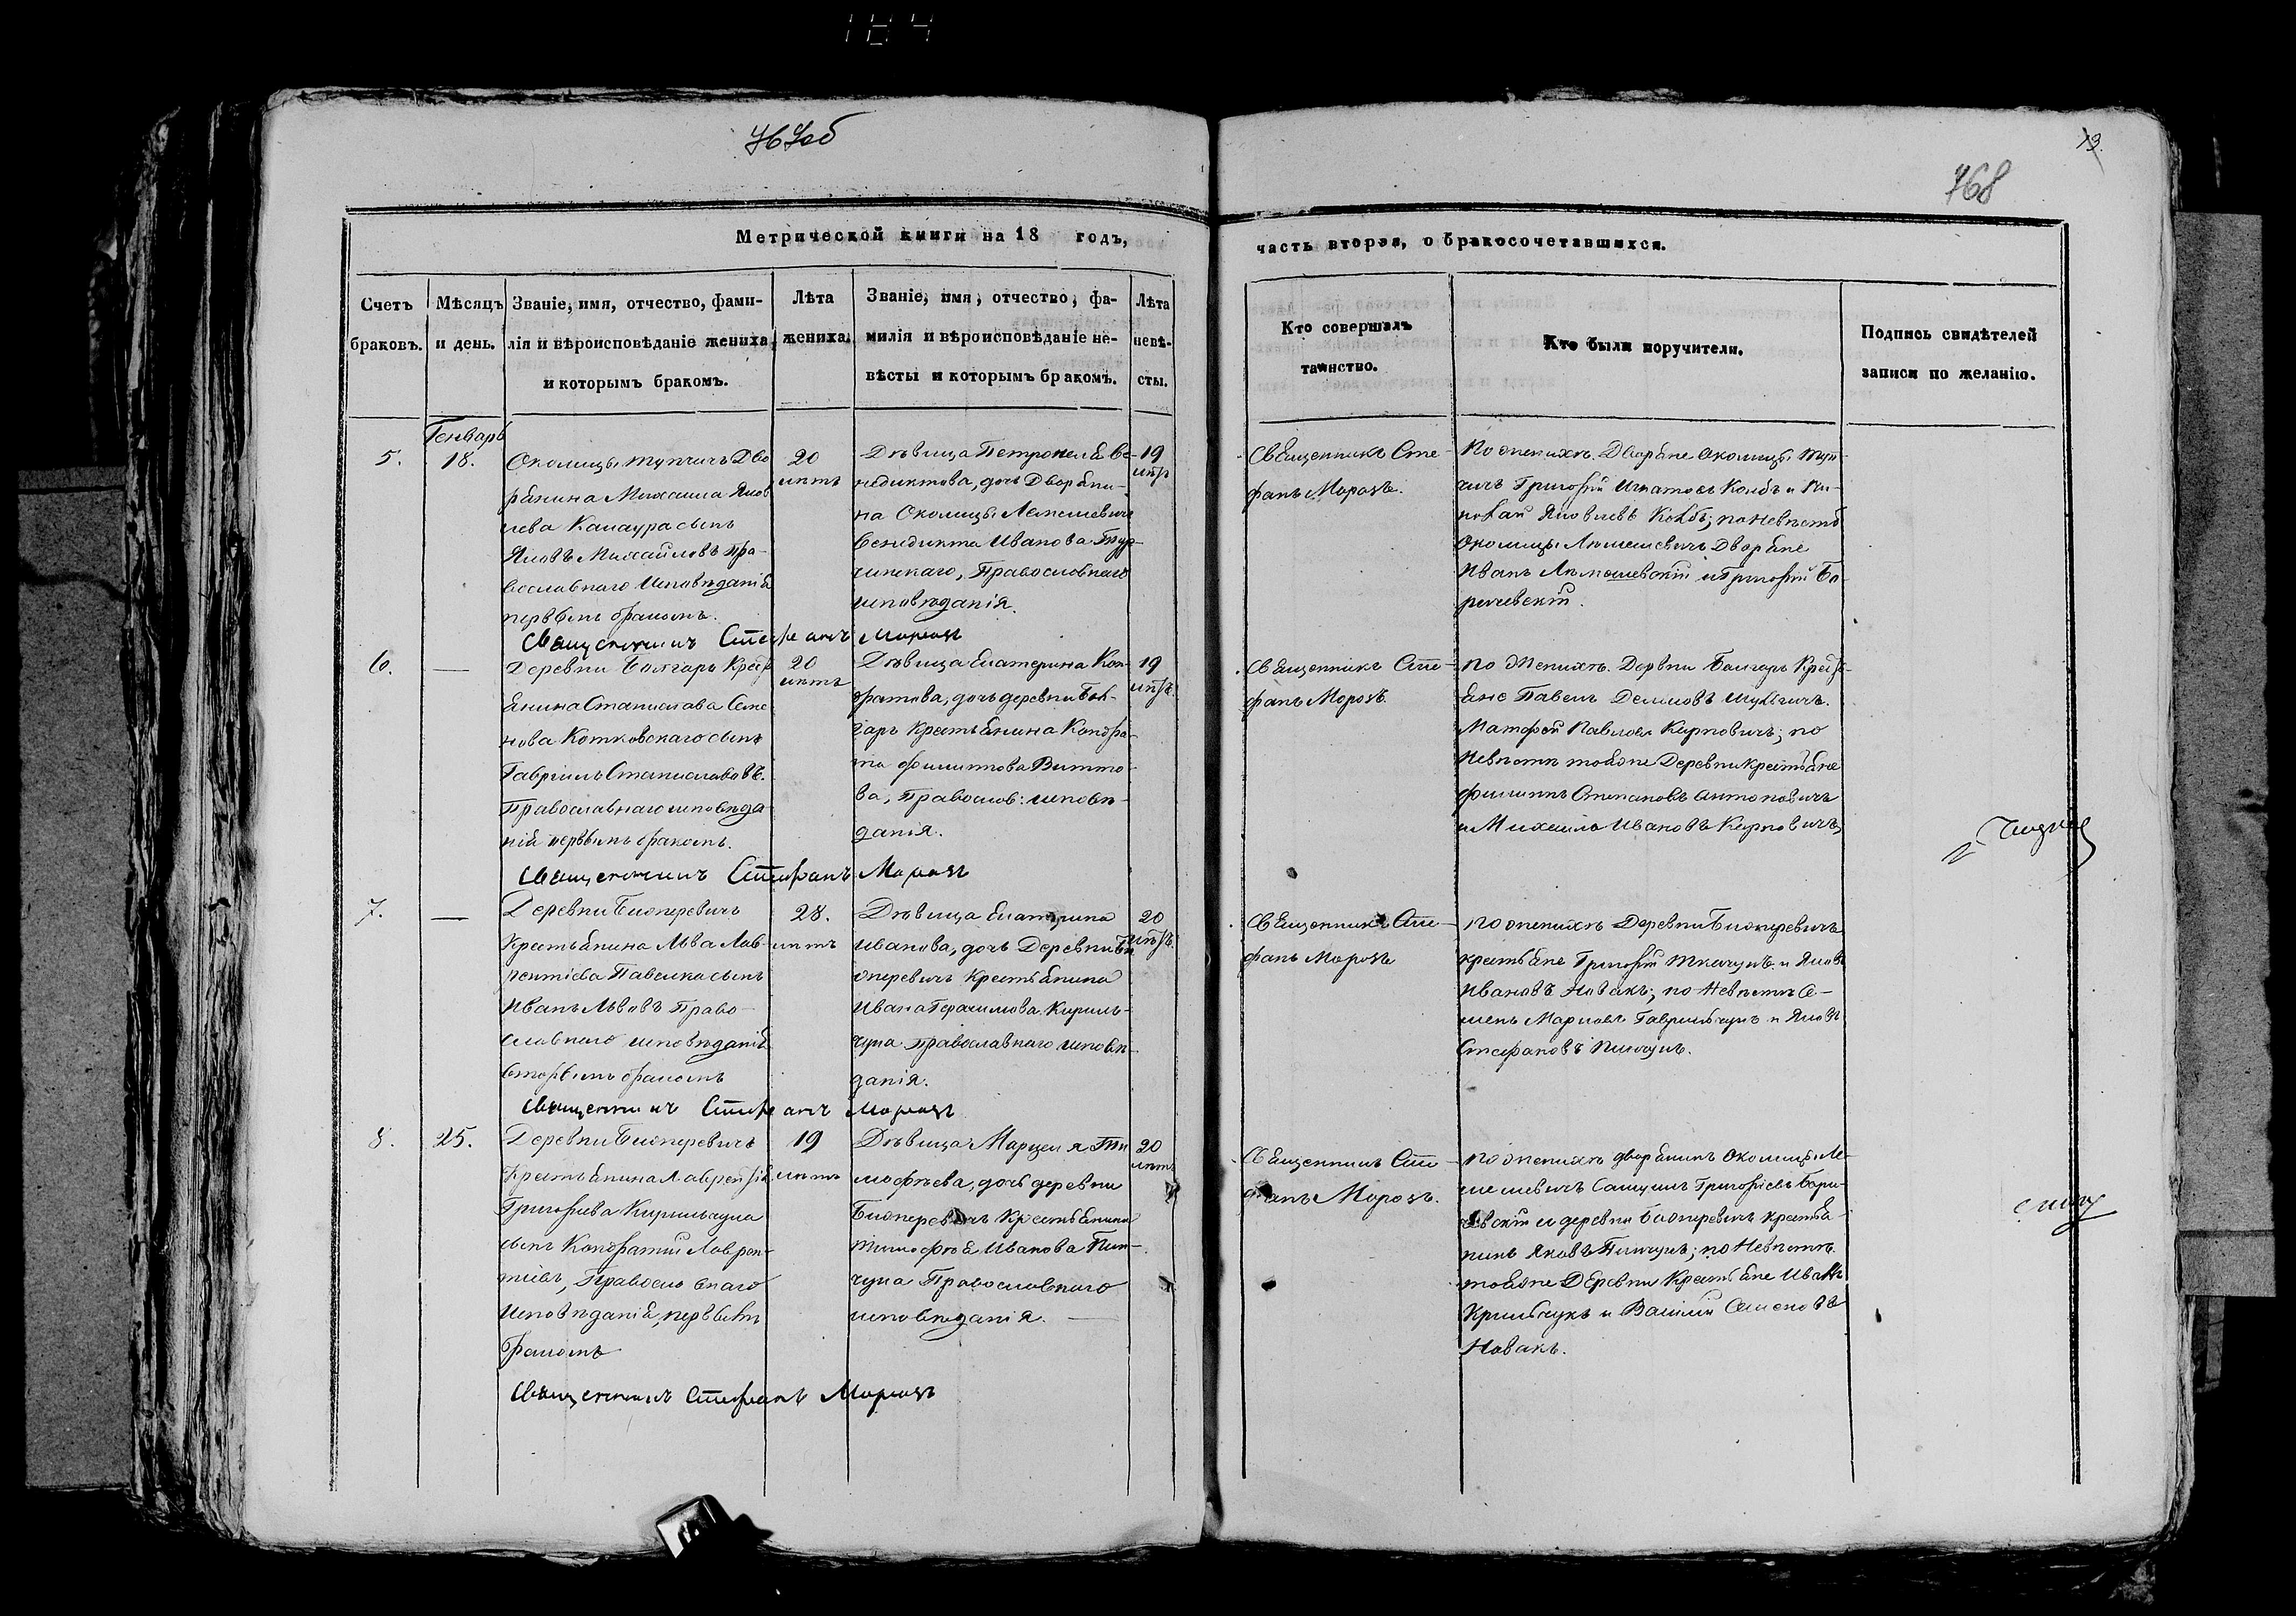 184
767об
13.
768
Метрической книги на 18 годъ,
часть вторая, о бракосочетавшихся.
Счетъ
браковъ.
Мѣсяцъ
и день.
Званіе, имя, отчество, фами-
лія и вѣроисповѣданіе жениха,
и которымъ бракомъ.
Лѣта
жениха.
Званіе, имя, отчество, фа-
милія и вѣроисповѣданіе не-
вѣсты и которымъ бракомъ.
Лѣта
невѣ-
сты.
Кто совершалъ
таинство.
Кто были поручители.
Подпись свидѣтелей
записи по желанію.
Генварь
5.
18.
Околицы Тупчичъ Дво
рянина Михаила Яков
лева сынъ
Яковъ Михайловъ Пра-
вославнаго исповѣданія
первымъ бракомъ.
20
лѣтъ
Дѣвица Петронеля Бе-
недиктова, дочь Дворяни-
на Околицы Лемешевичъ
Бенедикта Иванова Тур-
чинскаго, Православнаго
исповѣданія.
19
лѣтъ
Священникъ Сте-
фанъ Морозъ.
По женихѣ Дворяне околицы Туп-
чичъ Григорій Игнатовъ Колбъ и Ни-
колай Яковлевъ Колбъ; по невѣстѣ
околицы Лемешевичъ Дворяне
Иванъ Лемешевскій и Григорій Бо-
ричевскій.
Священникъ Стефанъ Морозъ
6.
—
Деревни Болгаръ Крест
янина Станислава Семе
нова Котковскаго сынъ
Гавріилъ Станиславовъ.
Православнаго исповѣда
нія первымъ бракомъ.
20
лѣтъ
Дѣвица Екатерина Кон-
дратова, дочь деревни Бол-
гаръ Крестьянина Кондра-
та Филиппова Витко-
ва, Православ: исповѣ-
данія.
19
лѣтъ.
Священникъ Сте-
фанъ Морозъ.
По женихѣ. Деревни Болгаръ Кресть-
яне Павелъ Демковъ
Матфей Павловъ Карповичъ; по
невѣстѣ тояже Деревни крестьяне
Филиппъ Степановъ Антоновичъ
и Михаилъ Ивановъ Карповичъ,
Священникъ Стефанъ Морозъ
7.
—
Деревни Біоперевичъ
Крестьянина Льва Лав-
рентіева Павелка сынъ
Иванъ Львовъ Право-
славнаго исповѣданія
вторымъ бракомъ
28.
лѣтъ
Дѣвица Екатерина
Иванова, дочь Деревни Би
оперевичъ Крестьянина
Ивана Герасимова Кириль-
чука православнаго исповѣ-
данія.
20
лѣтъ.
Священникъ Сте-
фанъ Морозъ
По женихѣ Деревни Біоперевичъ
крестьяне Григорій Ткачукъ и Яковъ
Ивановъ Новакъ; по невѣстѣ Се-
менъ Марковъ Гаврильчукъ и Яковъ
Стефановъ Пинчукъ.
Священникъ Стефанъ Морозъ
8.
25.
Деревни Біоперевичъ
Крестьянина Лаврентія
Григорьева Кирильчука
сынъ Кондратій Лаврен-
тіевъ, Православнаго
исповѣданія, первымъ
бракомъ
19
лѣтъ
Дѣвица Марцеля Ти
мофѣева, дочь деревни
Біоперевичъ Крестьянина
Тимофѣя Иванова Пин-
чука Православнаго
исповѣданія.
20
лѣтъ
Священникъ Сте-
фанъ Морозъ.
По женихѣ дворянинъ околицы Ле-
мешевичъ Самуилъ Григорьевъ Бори-
евскій и деревни Біоперевичъ крестья-
нинъ Яковъ Пинчукъ; по невѣстѣ
тояже Деревни Крестьяне Иванъ
Крильчукъ и Василій Семеновъ
Новакъ.
Священникъ Стефанъ Морозъ